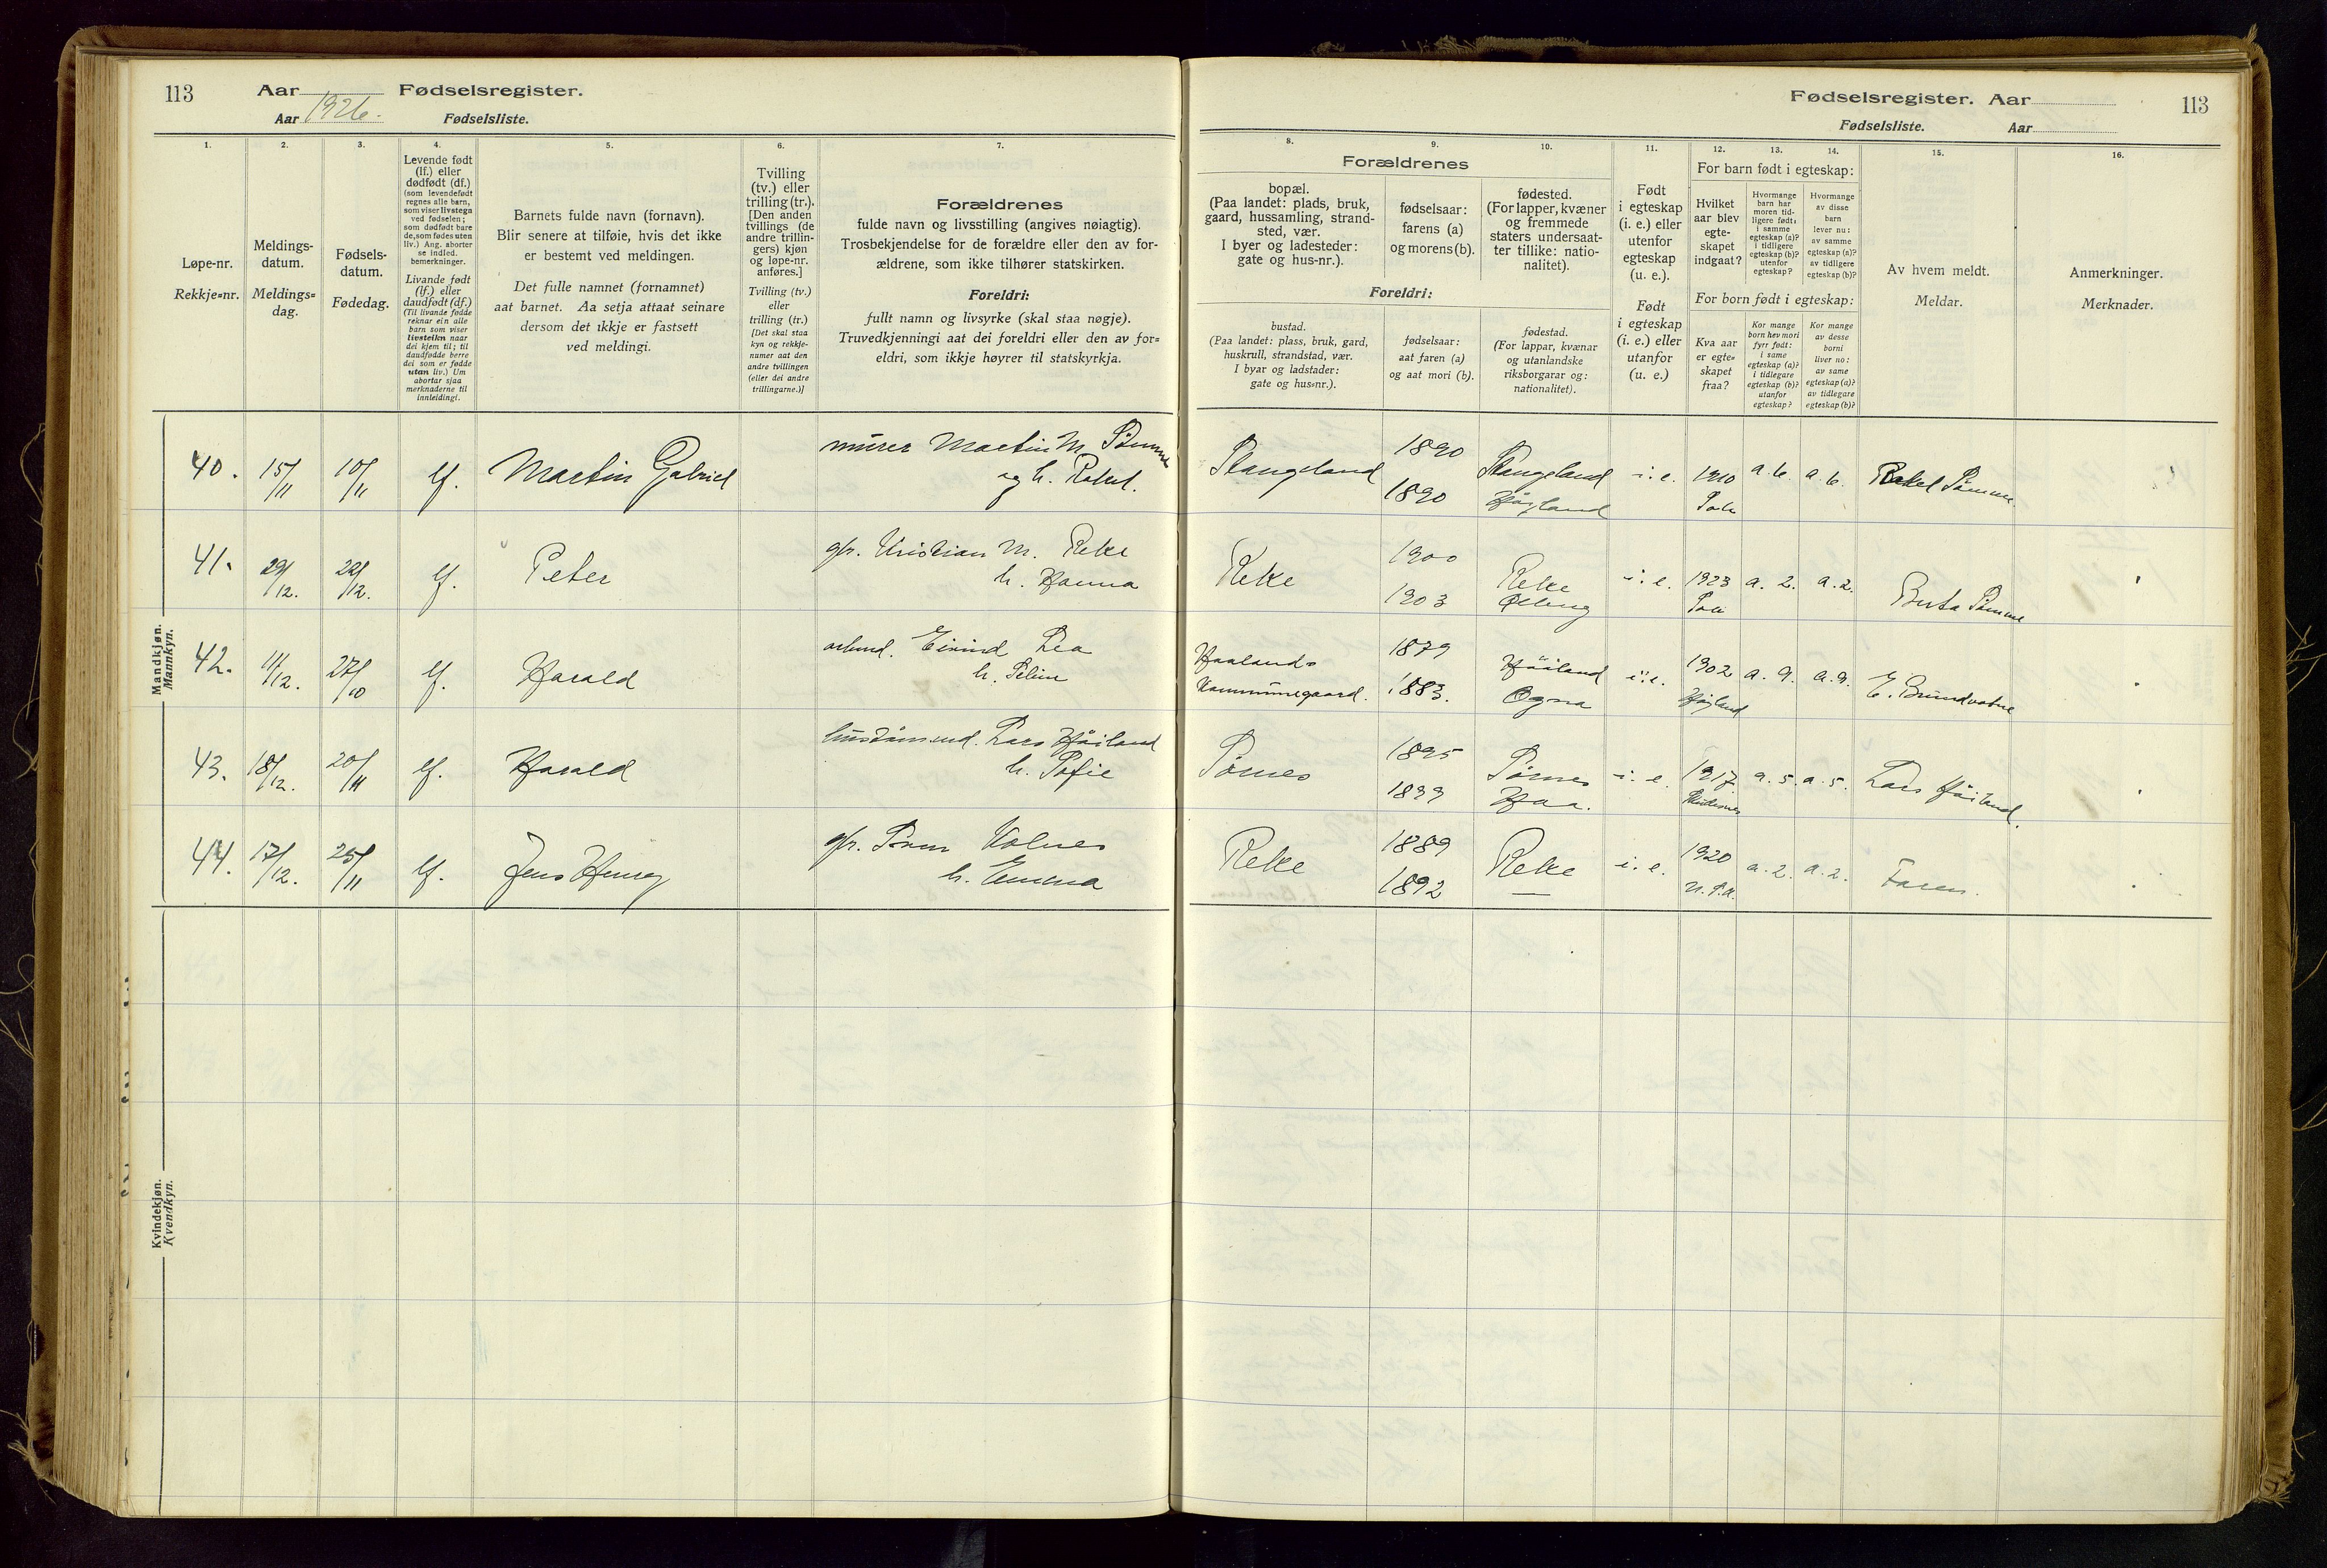 113
Aar 1926. Fødselsregister.
Aar Fødselsliste.
1.
Løpe-nr.
Rekkje=nr.
2.
Meldings-
datum.
Meldings=
dag.
3.
Fødsels-
datum.
Fødedag.
4.
Levende født
(lf.) eller
dødfødt (df.)
(som levendefødt
regnes alle barn,
som viser livstegn
ved fødselen;
som dødfødt bare
de, som fødes uten
liv.) Ang. aborter
se indled.
bemerkninger.
Livande født
(lf.) eller
daudfødt (df.)
(Til livande fødde
reknar ein alle
barn som viser
livsteikn naar
dei kjem til; til
daudfødde berre
dei som er fødde
utan liv.) Um
abortar sjaa
merknaderne til
innleidingi.
5.
Barnets fulde navn (fornavn).
Blir senere at tilføie, hvis det ikke
er bestemt ved meldingen.
Det fulle namnet (fornamnet)
aat barnet. Aa setja attaat seinare
dersom det ikkje er fastsett
ved meldingi.
6.
Tvilling
(tv.) eller
trilling (tr.).
[Den anden
tvillings (de
andre trillin-
gers) kjøn
og løpe-nr.
anføres.]
Tvilling (tv.)
eller
trilling (tr.)
[Det skal staa
kyn og rekkje-
numer aat den
andre tvillingen
(eller dei andre
trillingarne.)]
7.
Forældrenes
fulde navn og livsstilling (angives nøiagtig).
Trosbekjendelse for de forældre eller den av for-
ældrene, som ikke tilhører statskirken.
Foreldri:
fullt namn og livsyrke (skal staa nøgje).
Truvedkjenningi aat dei foreldri eller den av for=
eldri, som ikkje høyrer til statskyrkja.
Mandkjøn.
Mannkyn.
40. 15/11 10/11 lf. Martin Gabriel murer Martin M. Sömme
og h. Rakel.
41. 29/12. 22/12. lf. Peter gbr. Kristian M. Reke
h. Hanna
42. 11/12. 27/10 lf. Harald Eivind Lea
h. Seline
43. 18/12. 20/11 lf. Harald Lars Håiland
h. Sofie
44. 17/12. 25/11 lf. Jens Henry gbr. Kolnes
h. Emma
Kvindekjøn.
Kvendkyn.
Fødselsregister. Aar
Fødselsliste. Aar
113
8.
Forældrenes
bopæl.
(Paa landet: plads, bruk,
gaard, hussamling, strand-
sted, vær.
I byer og ladesteder:
gate og hus-nr.).
Foreldri:
bustad.
(Paa landet: plass, bruk, gard,
huskrull, strandstad, vær.
I byar og ladstader:
gate og hus=nr.).
9.
fødselsaar:
farens (a)
og morens (b).
fødselsaar:
aat faren (a)
og aat mori (b).
10.
fødested.
(For lapper, kvæner
og fremmede
staters undersaat-
ter tillike: natio-
nalitet).
fødestad.
(For lappar, kvænar
og utanlandske
riksborgarar og:
nationalitet).
11.
Født
i egteskap
(i. e.) eller
utenfor
egteskap
(u. e.).
Født
i egteskap
(i. e.) eller
utanfor
(u. e.)
12. 13. 14.
For barn født i egteskap:
Hvilket
aar blev
egte-
skapet
indgaat?
Hvormange
barn har
moren tid-
ligere født:
i samme
egteskap (a)?
i tidligere
egteskap (b)?
utenfor
egteskap?
Hvormange
av disse
barn
lever nu:
av samme
egteskap (a)?
av tidligere
egteskap (b)?
For born født i egteskap:
Kva aar
er egte=
skapet
fraa?
Kor mange
born hev mori
fyrr født:
i same
egteskap (a)?
i tidlegare
egteskap (b)?
utanfor
egteskap?
Kor mange
av desse
borni
liver no:
av same
egteskap (a)?
av tidlegare
egteskap (b)?
15.
Av hvem meldt.
Meldar.
16.
Anmerkninger.
Merknader.
Stangeland 1890 Stangeland i. e. 1910 a. 6. a. 6. Rakel Sömme.
1890 Höiland Sola
Reke 1900 Reke i. e. 1923 a. 2. a. 2. Berta Sömme
1903 Sola
Haalands 1879 Håiland i. e. 1902 a. 9. a. 9. E. Brundvatne
Kommunegaard. 1883. Ogna
Sörnes 1895 Sörnes i. e. 1917. a. 5. a. 5. Lars Håiland.
1899 Haa. Skudesnes
Reke 1889 Reke i. e. 1920 a. 2. a. 2. Faren.
1892 —